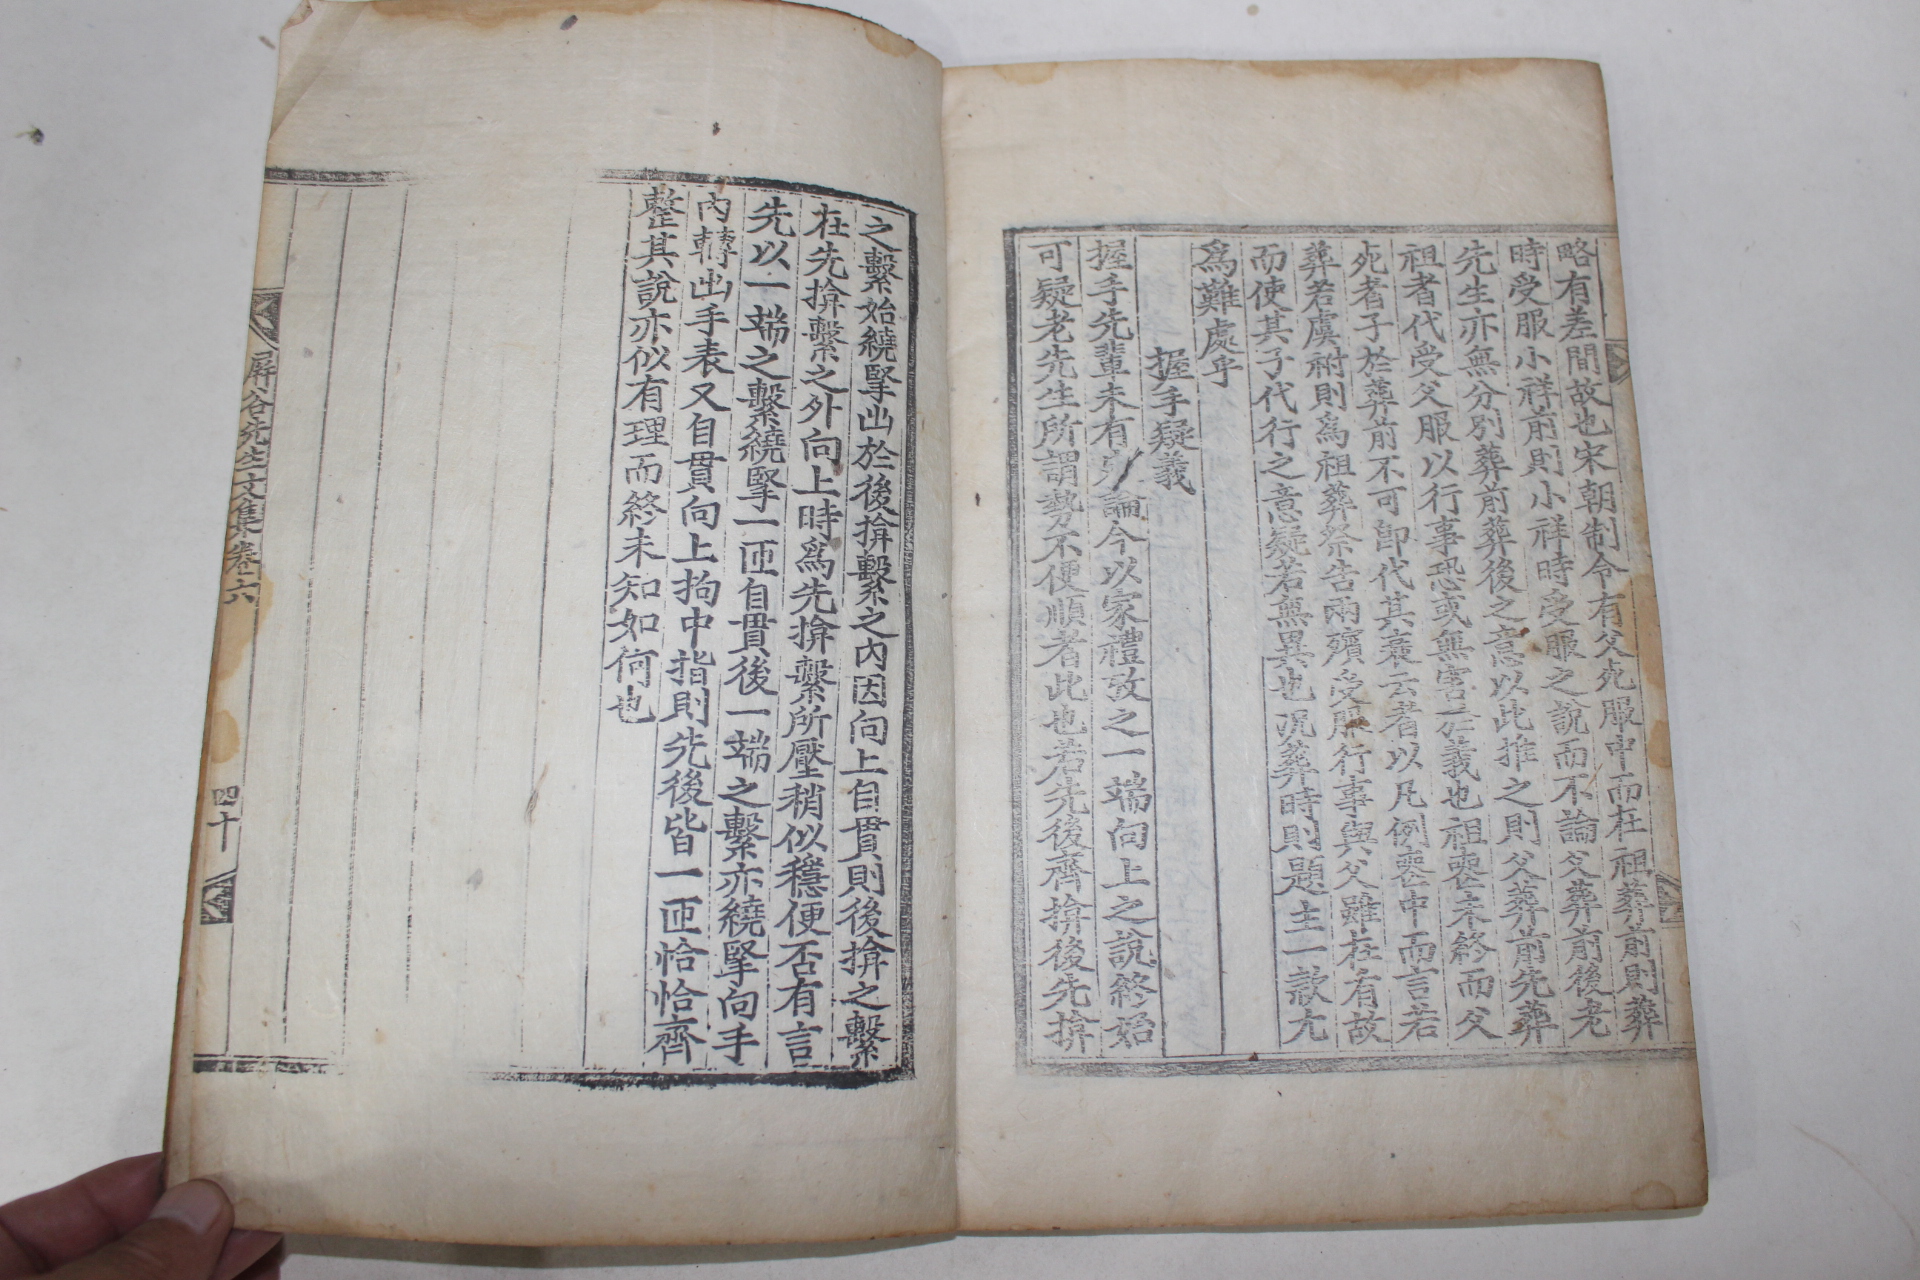 略有差間故也宋朝制令有父死服中而在祖葬前則葬
時受服小祥前則小祥時受服之說而不論父葬前後老
先生亦無分別葬前葬後之意以此推之則父葬前先葬
祖者代受父服以行事恐或無害於義也祖喪未終而父
死者子於葬前不可卽代其衰云者以凡例喪中而言若
葬若虞祔則爲祖葬祭告兩殯受服行事與父雖在有故
而使其子代行之意疑若無異也況葬時則題主一款尤
爲難處乎
握手疑義
握手先輩未有論今以家禮攷之一端向上之說終始
可疑老先生所謂勢不便順者此也若先後齊揜後先揜
之繫始繞掔出於後揜繫之內因向上自貫則後揜之繫
在先揜繫之外向上時爲先揜繫所壓稍似穩便否有言
先以一端之繫繞掔一匝自貫後一端之繫亦繞掔向手
內轉出手表又自貫向上拘中指則先後皆一匝恰恰齊
整其說亦似有理而終未知如何也
屛谷先生文集卷六
四十